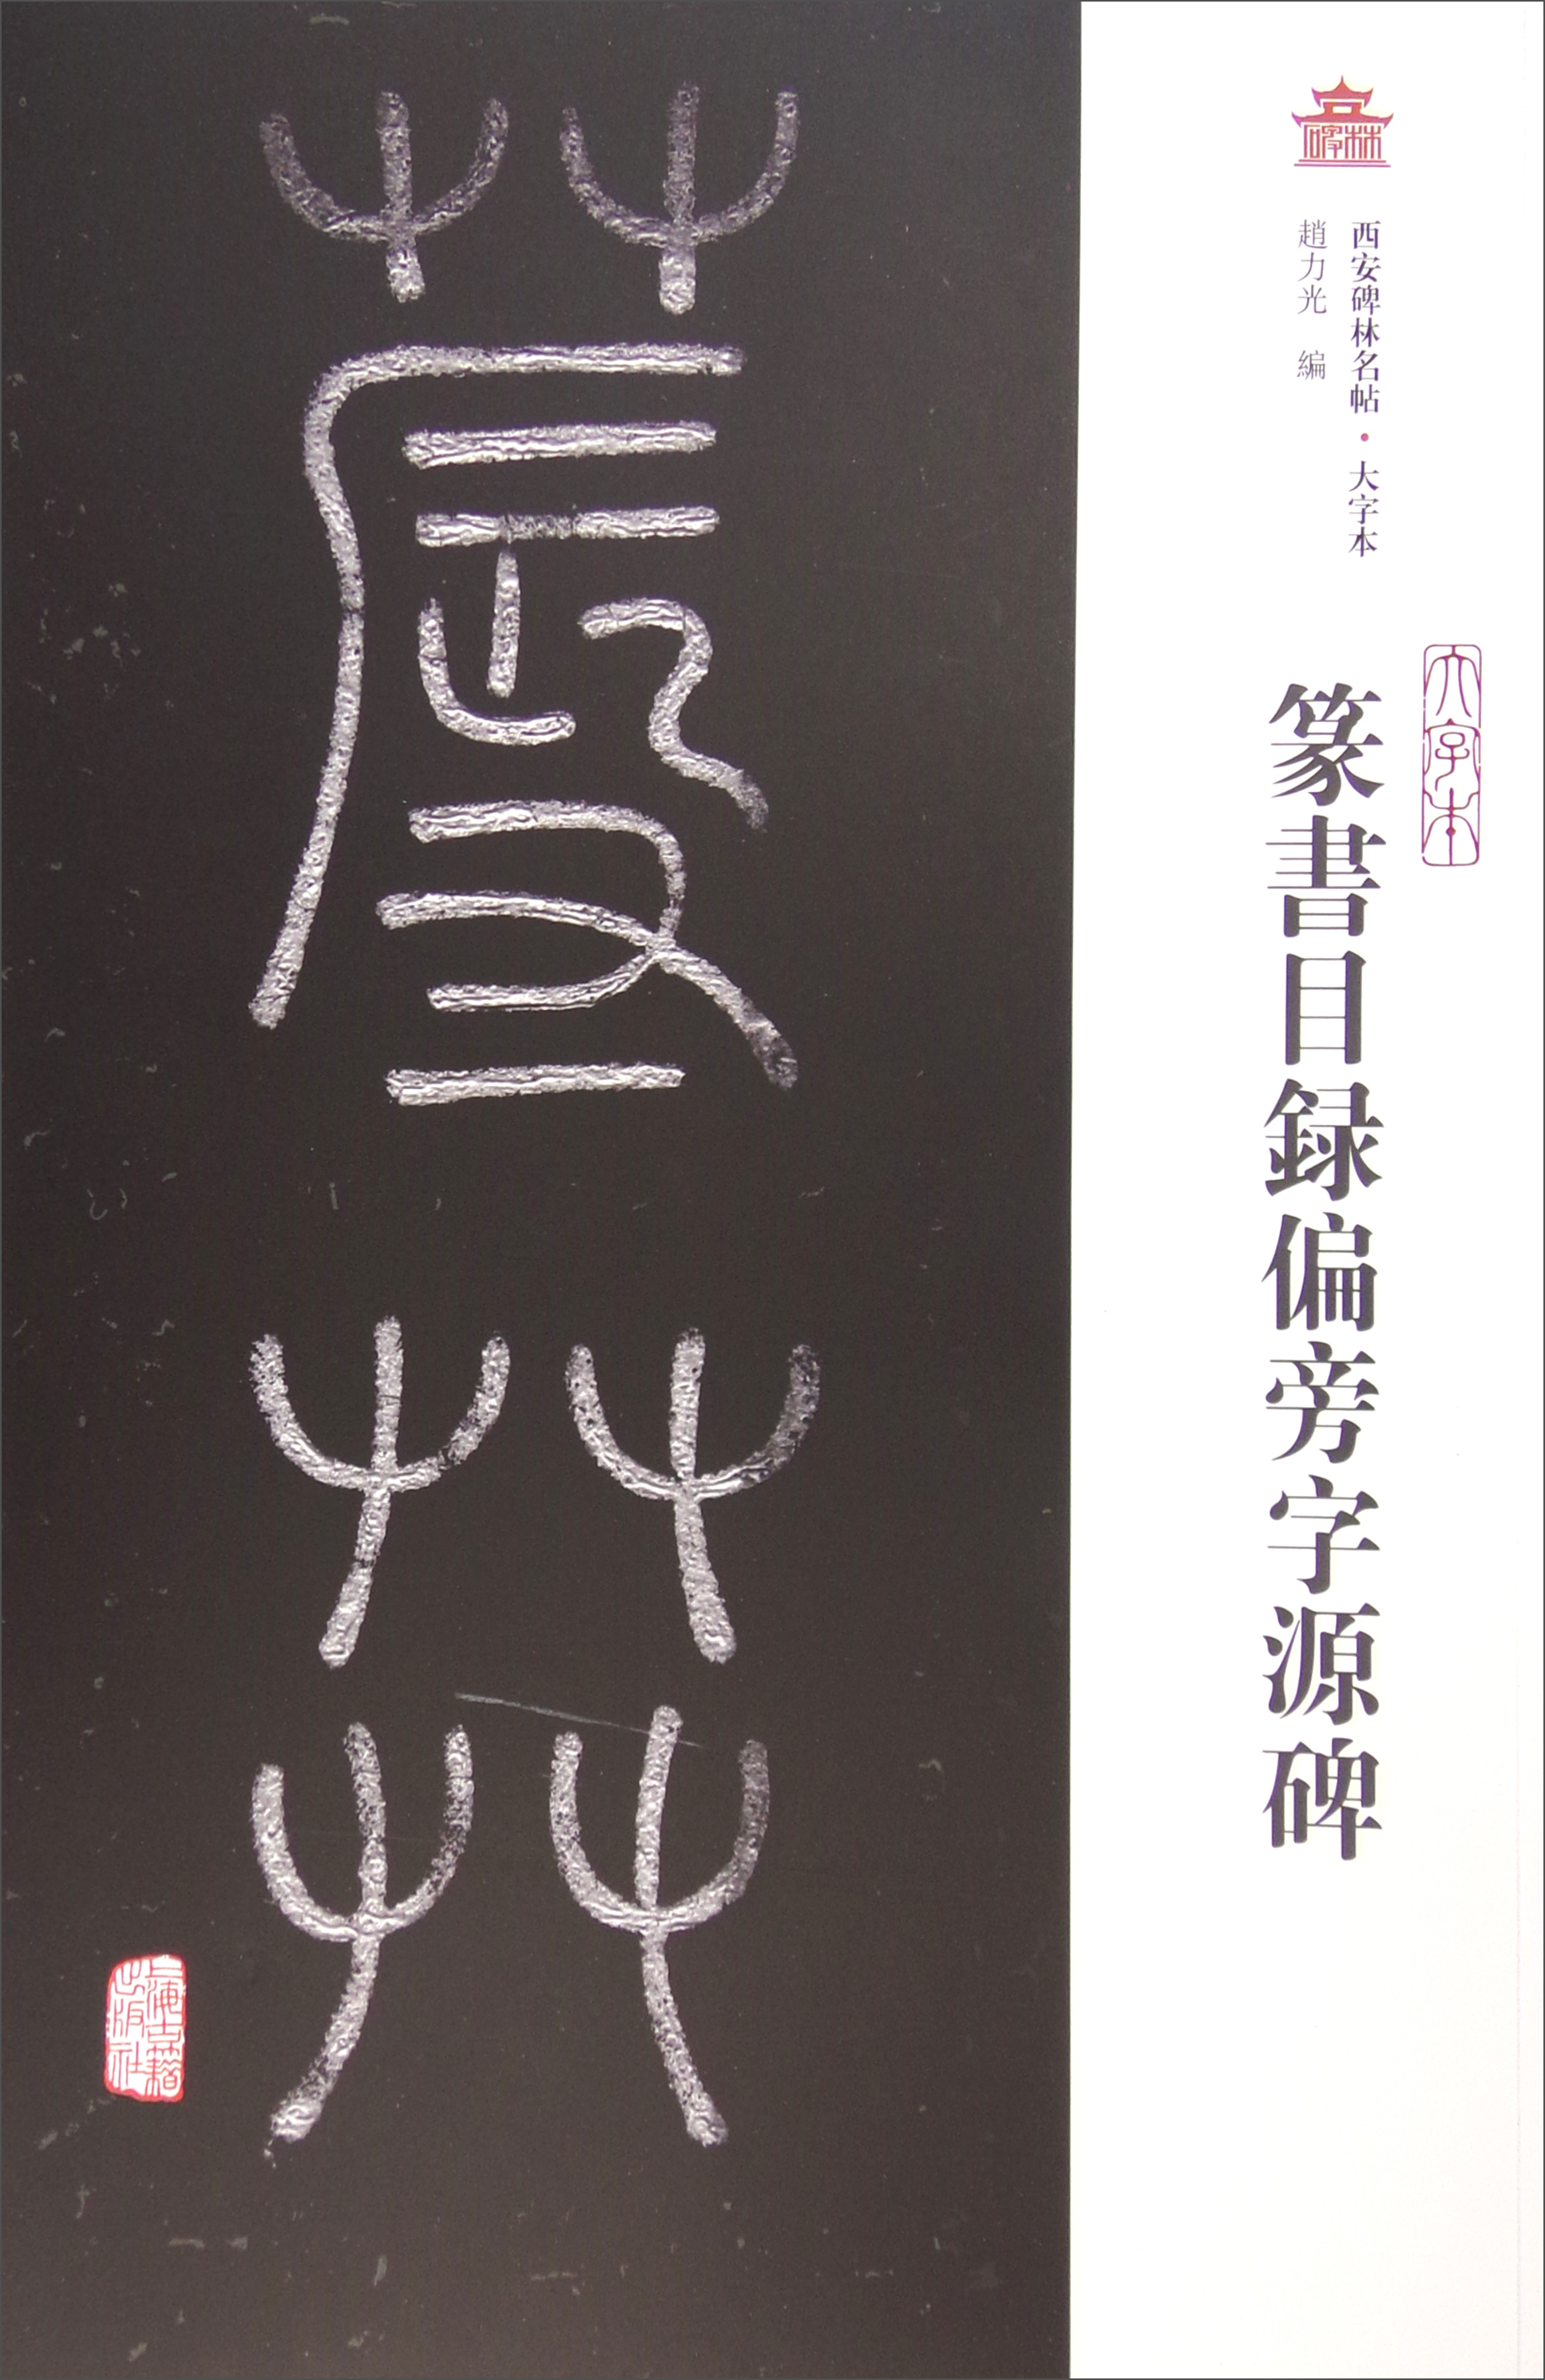 碑林
西安碑林名帖·大字本
趙力光 編
大字本
篆書目録偏旁字源碑
蓐茻
上海古籍
出版社